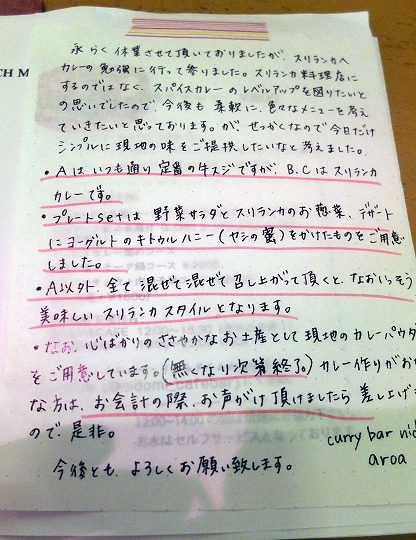 永らく休業させて頂いておりましたが、スリランカへ
カレーの勉強に行って参りました。スリランカ料理店に
するのではなく、スパイスカレーのレベルアップを図りたいと
の思いでしたので、今後も柔軟に、色々なメニューを考え
ていきたいと思っております。が、せっかくなので今日だけ
シンプルに現地の味をご提供したいなと考えました。
・Aはいつも通り定番の牛スジですが、B.Cはスリランカ
カレーです。
・プレートsetは野菜サラダとスリランカのお惣菜、デザート
にヨーグルトのキトゥルハニー(ヤシの蜜)をかけたものをご用意
しました。
・A以外、全て混ぜて混ぜて召し上がって頂くと、なおいっそう
美味しいスリランカスタイルとなります。
・なお、心ばかりのささやかなお土産として現地のカレーパウダ
をご用意しています。(無くなり次第終了。)カレー作りがお
な方は、お会計の際、お声がけ頂けましたら差し上げ
ので是非。
今後とも、よろしくお願い致します。
curry bar nid
aroa
CH M
お水はセルフサービスとなっております